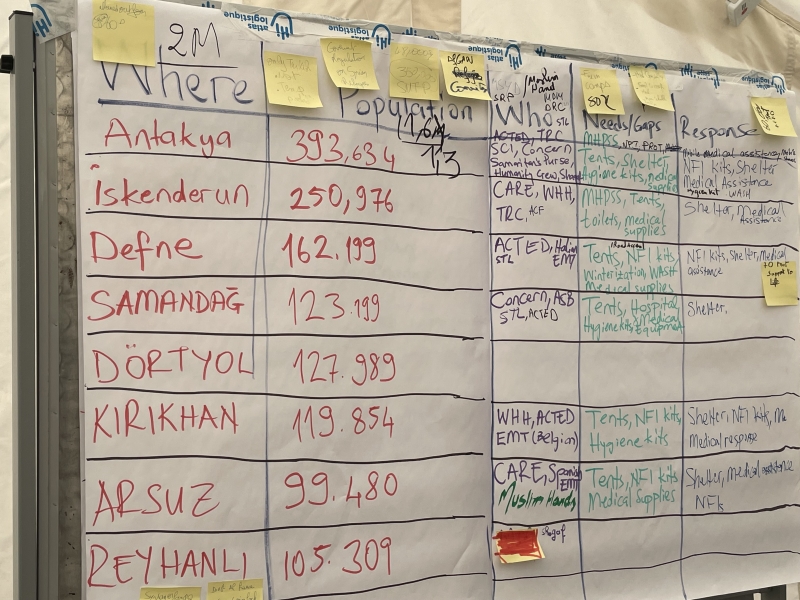 atlas logistique
atlas logistique
atlas logistique
2M
Where
Population
(1,6M)
1,3
Who
SRF
DRC
STL
Needs/Gaps
Response
Antakya
393,634
ACTED, TRC
SCI, Concern
Samaritan's Purse,
Humanity Crew,
MHPSS,
Tents, Shelter,
Hygiene kits, medical
supplies
Mobile medical assistance,
NFI kits, Shelter
Medical Assistance
Hygiene kit WASH
İskenderun
250,976
CARE, WHH,
TRC ACF
MHPSS, Tents,
toilets, medical
supplies
Shelter, Medical
Assistance
Defne
162.199
ACTED, Italian
STL EMT
Tents, NFI kits,
Winterization, WASH
Medical supplies
NFI kits, Shelter, Medical
assistance
SAMANDAĞ
123.199
Concern, ASB
STL, ACTED
Tents, Hospital,
Hygiene kits, Medical
Equipment
Shelter,
DÖRTYOL
127.989
KIRIKHAN
119.854
WHH, ACTED
EMT (Belgian)
Tents, NFI kits,
Hygiene kits
Shelter, NFI kits,
Medical response
ARSUZ
99.480
CARE, Spanish
EMT
Muslim Hands
Tents, NFI kits
Medical Supplies
Shelter, medical assistance
NFIs
REYHANLI
105.309